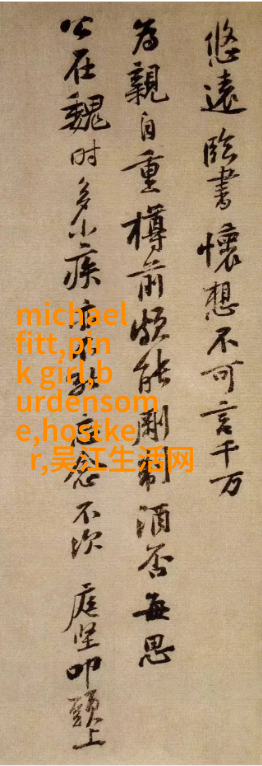 悠遠臨書懷想不可言千万
為親自重樽前頗能剛制酒否每思
公在魏时多小疾忘念不次 庭坚叩頭上
michael
fitt,pin
k girl,b
urdensom
e,hostke
r,吴江生活网